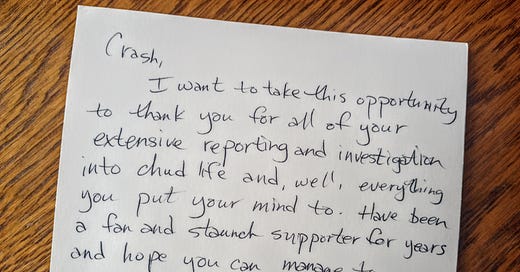 Crash,
I want to take this opportunity
to thank you for all of your
extensive reporting and investigation
into chud life and, well, everything
you put your mind to. Have been
a fan and staunch supporter for years
and hope you can manage to